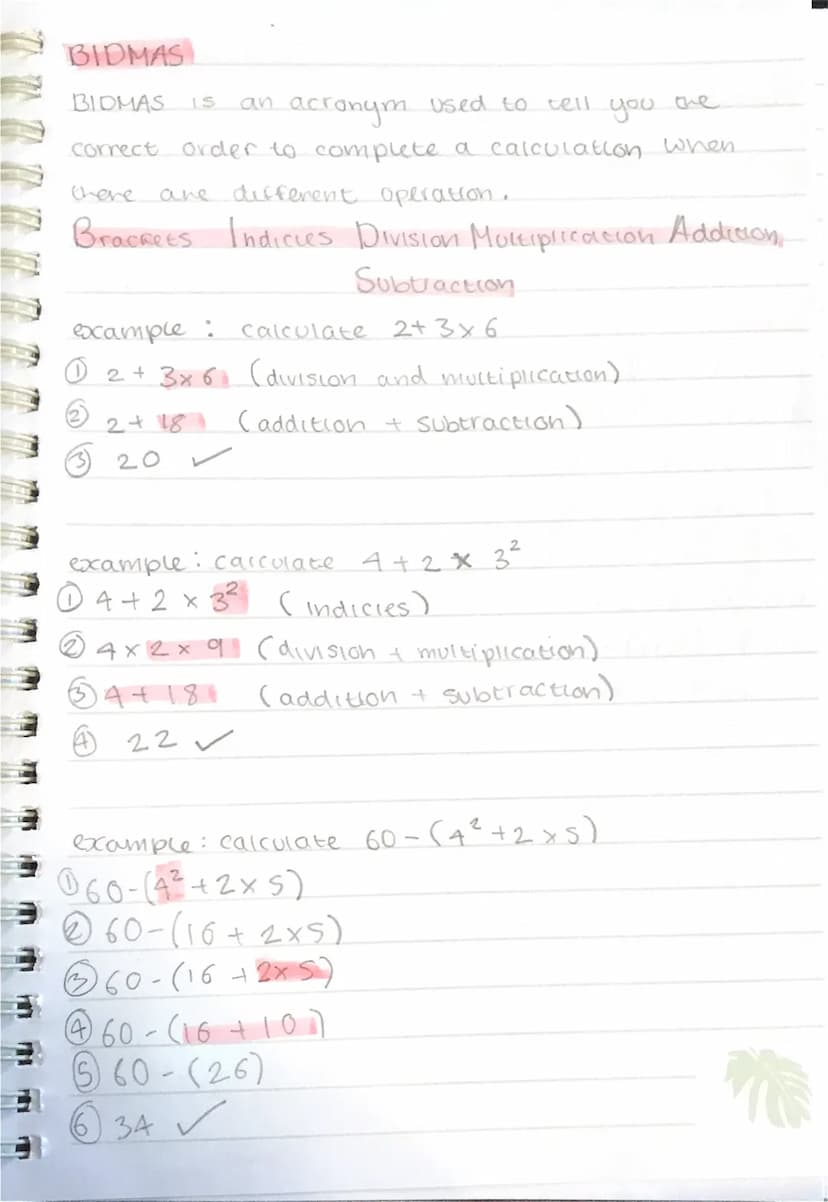 BIDMAS
BIDMAS is an acronym used to tell you the
correct order to complete a calculation when
there are different operation.
Brackets Indicies Division Multiplication Addition
Subtraction
example : calculate 2+3×6
① 2 + 3×6 (division and multiplication)
② 2+ 18 (addition + subtraction)
③ 20 ✓
example : calculate 4 + 2 × 3²
① 4 + 2 × 3² (indicies)
② 4 × 2 × 9 (division + multiplication)
③ 4 + 18 (addition + subtraction)
④ 22 ✓
example : calculate 60 - (4² + 2 × 5)
① 60 - (4² + 2 × 5)
② 60 - (16 + 2×5)
③ 60 - (16 + 2×5)
④ 60 - (16 + 10)
⑤ 60 - (26)
⑥ 34 ✓